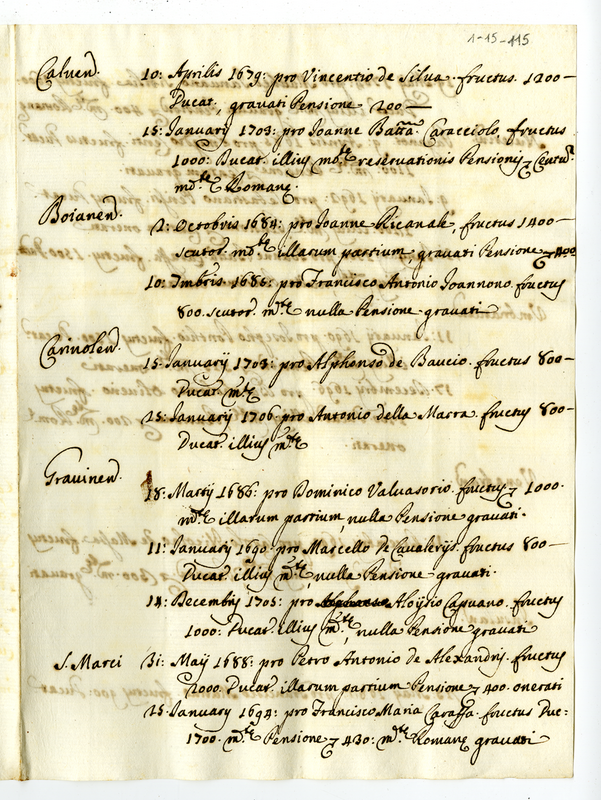 1-15-115
Calven. 10: Aprilis 1679: pro Vincentio de Silva fructus 1200 —
Ducat, gravati Pensione 200 —
15: January 1703: pro Joanne Batta Caracciolo, fructus
1000: Ducat illius mte reservationis Pensionis
mte Romane
Boianen. 2: Octobris 1684: pro Joanne Ricanale, fructus 1400 —
scutor. mte illarum partium, gravati Pensione 400
10: Xmbris 1685: pro Francisco Antonio Joannono fructus
800 scutor. mte nulla Pensione gravati
Carinolen. 15 January 1703: pro Alphonso de Baucio fructus 800 —
Ducat mte
25: January 1706 pro Antonio della Marra fructus 800 —
Ducat illius mte
Gravinen. 18: Martij 1686: pro Dominico Valvasorio fructus 1000
mte illarum partium, nulla Pensione gravati
11: January 1690: pro Marcello de Cavalerijs fructus 800 —
Ducat illius mte, nulla Pensione gravati
14: Decembris 1705: pro Aloysio Capuano fructus
1000: Ducat illius mte, nulla Pensione gravati
S. Marci 31: Maij 1688: pro Petro Antonio de Alexandris fructus
2000 Ducat illarum partium Pensione 400 onerati
25 January 1694: pro Francisco Maria Caraffa fructus Duc:
1700 mte Pensione 430: mte Romane gravati